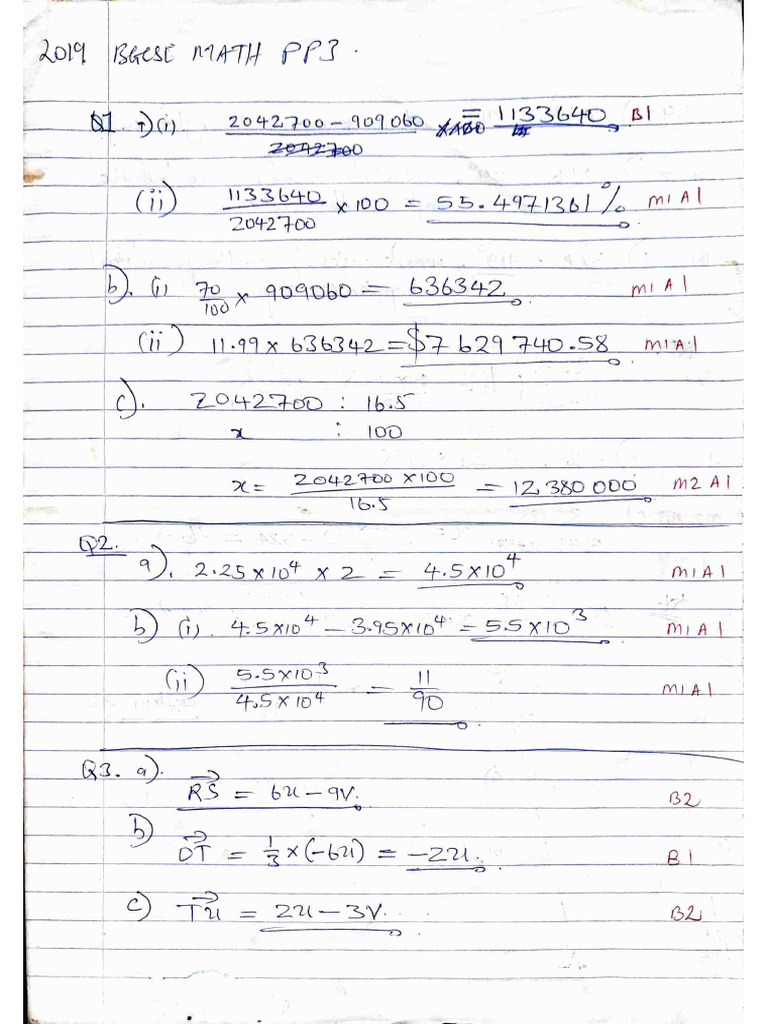 2019 BGCSE MATH PP3.
Q1. a)(i) 2042700 - 909060 = 1133640 B1
2042700
(ii) 1133640/2042700 × 100 = 55.4971361% M1 A1
b). (i) 70/100 × 909060 = 636342 M1 A1
(ii) 11.99 × 636342 = $7 629 740.58 M1A1
c). 2042700 : 16.5
x : 100
x = 2042700 × 100/16.5 = 12 380 000 M2 A1
Q2.
a). 2.25×10⁴ × 2 = 4.5×10⁴ M1A1
b) (i). 4.5×10⁴ - 3.95×10⁴ = 5.5×10³ M1A1
(ii) 5.5×10³/4.5×10⁴ = 11/90 M1A1
Q3. a). RS→ = 6u - 9v. B2
b) OT→ = 1/3 × (-6u) = -2u. B1
c) Tu→ = 2u - 3v. B2